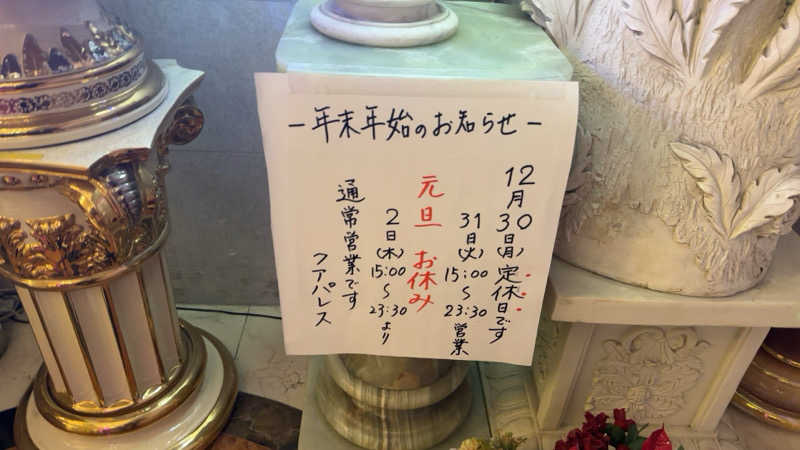 －年末年始のお知らせ－
12月30日(月)定休日です
31日(火)15:00～23:30営業
元旦 お休み
2日(木)15:00～23:30より
通常営業です
ファパレス